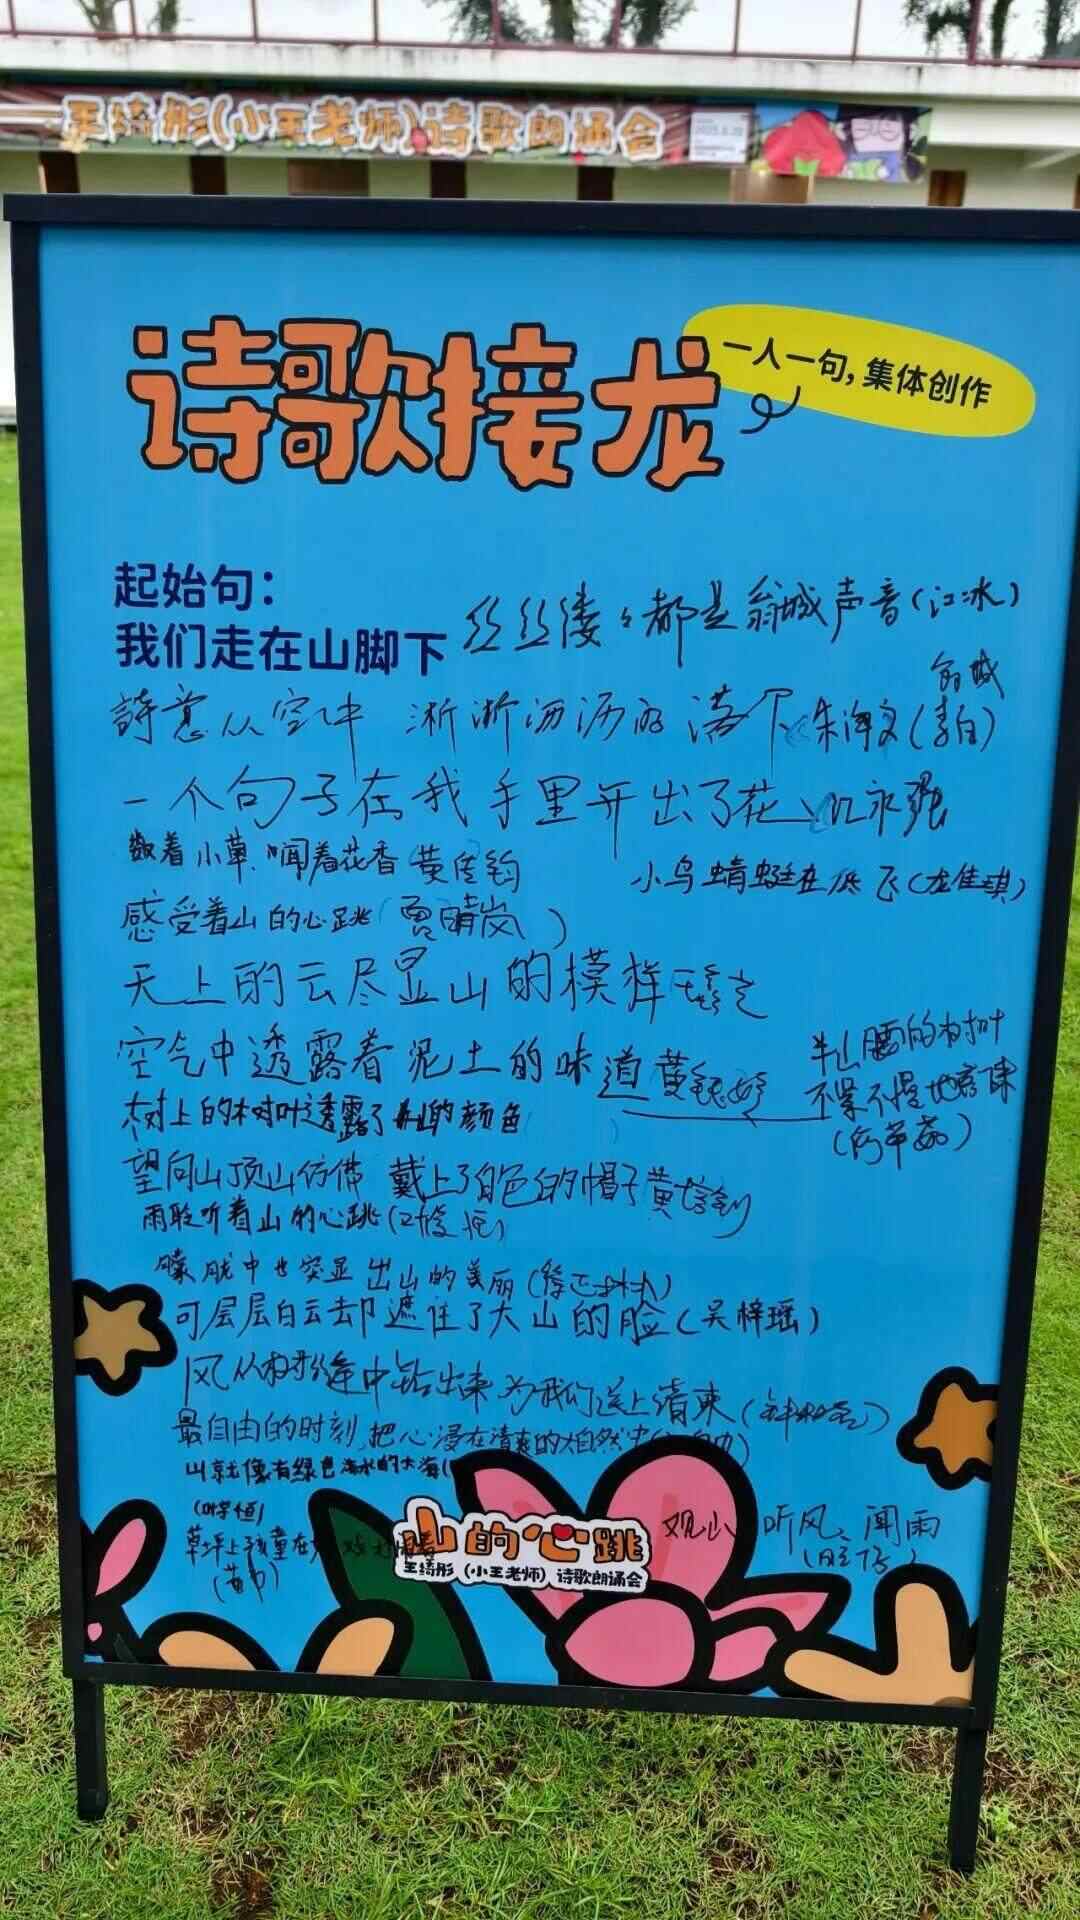 王绮彤(小王老师)诗歌朗诵会
诗歌接龙
一人一句,集体创作
起始句:
我们走在山脚下
丝丝缕々都是翁城声音(江冰)
翁城
詩意从空中 淅淅沥沥的落下 朱海文(李白)
一个句子在我手里开出了花
数着小草、闻着花香
小鸟蜻蜓在低飞(龙佳琪)
感受着山的心跳(贾晴岚)
天上的云尽显山的模样
空气中透露着泥土的味道
半山腰的树叶
不紧不慢地
树上的树叶透露了别的颜色
望向山顶山仿佛戴上了白色的帽子
雨聆听着山的心跳
朦胧中也突显出山的美丽
可层层白云却遮住了大山的脸(吴梓瑶)
风从树缝中钻出来为我们送上清凉
最自由的时刻,把心浸在清爽的大自然中
山就像有绿色海水的大海
(叶宇恒)
草坪上孩童在
观山、听风、闻雨
山的心跳
王绮彤(小王老师)诗歌朗诵会